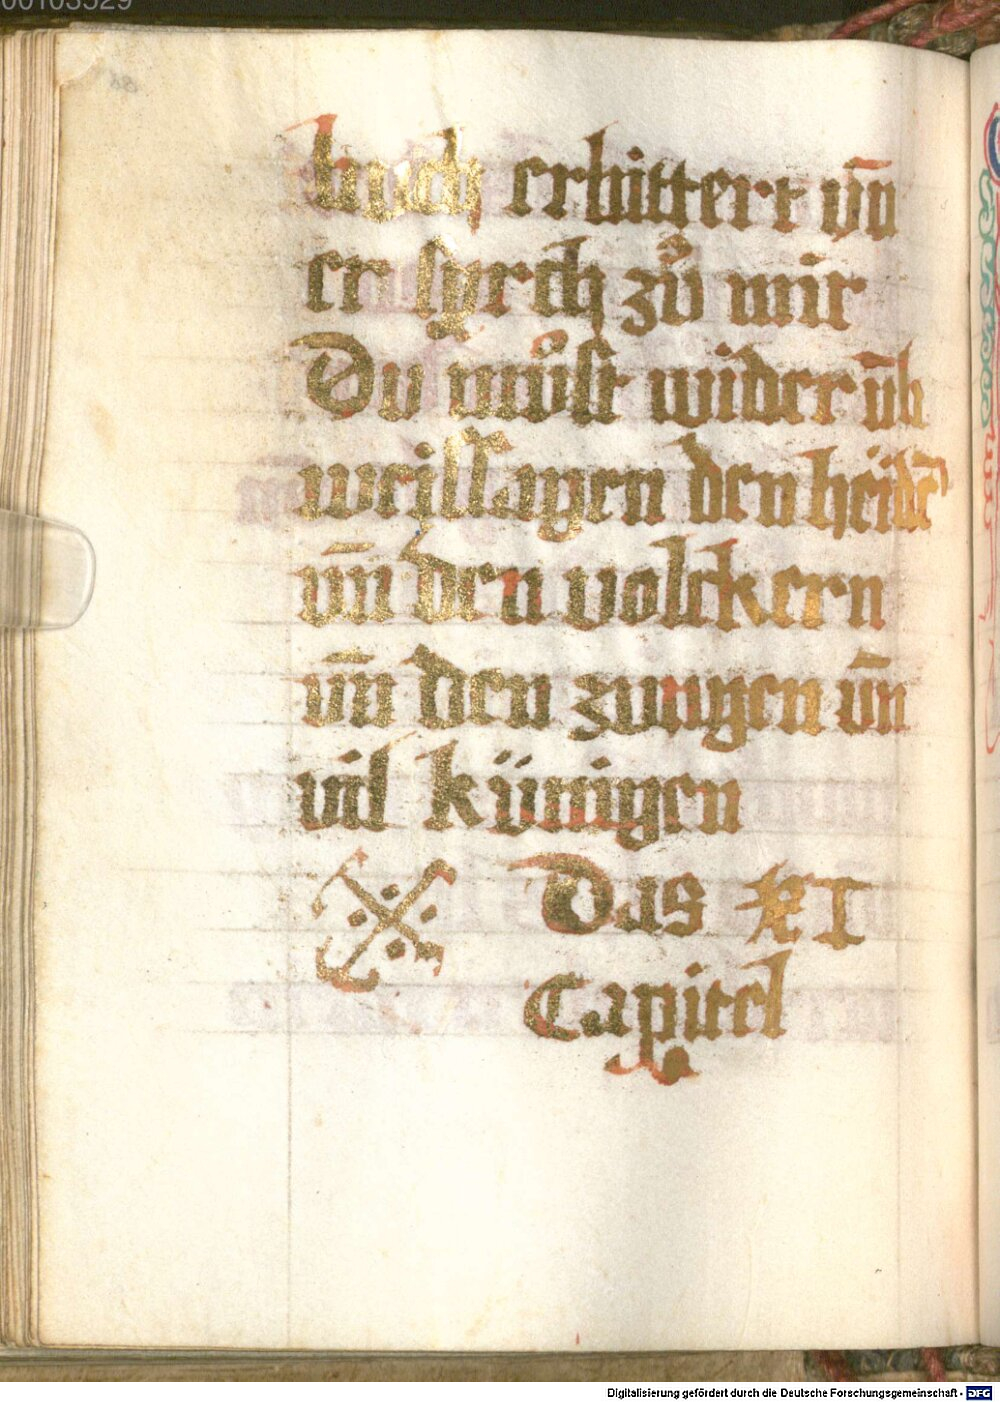 00103529
buch erbittert vn̄
er sprch zů mir
Du můst wider vb̄
weissagen den heidē
vn̄ den volckern
vn̄ den zungen vn̄
vil künigen
Das XI
Capitel
Digitalisierung gefördert durch die Deutsche Forschungsgemeinschaft - DFG